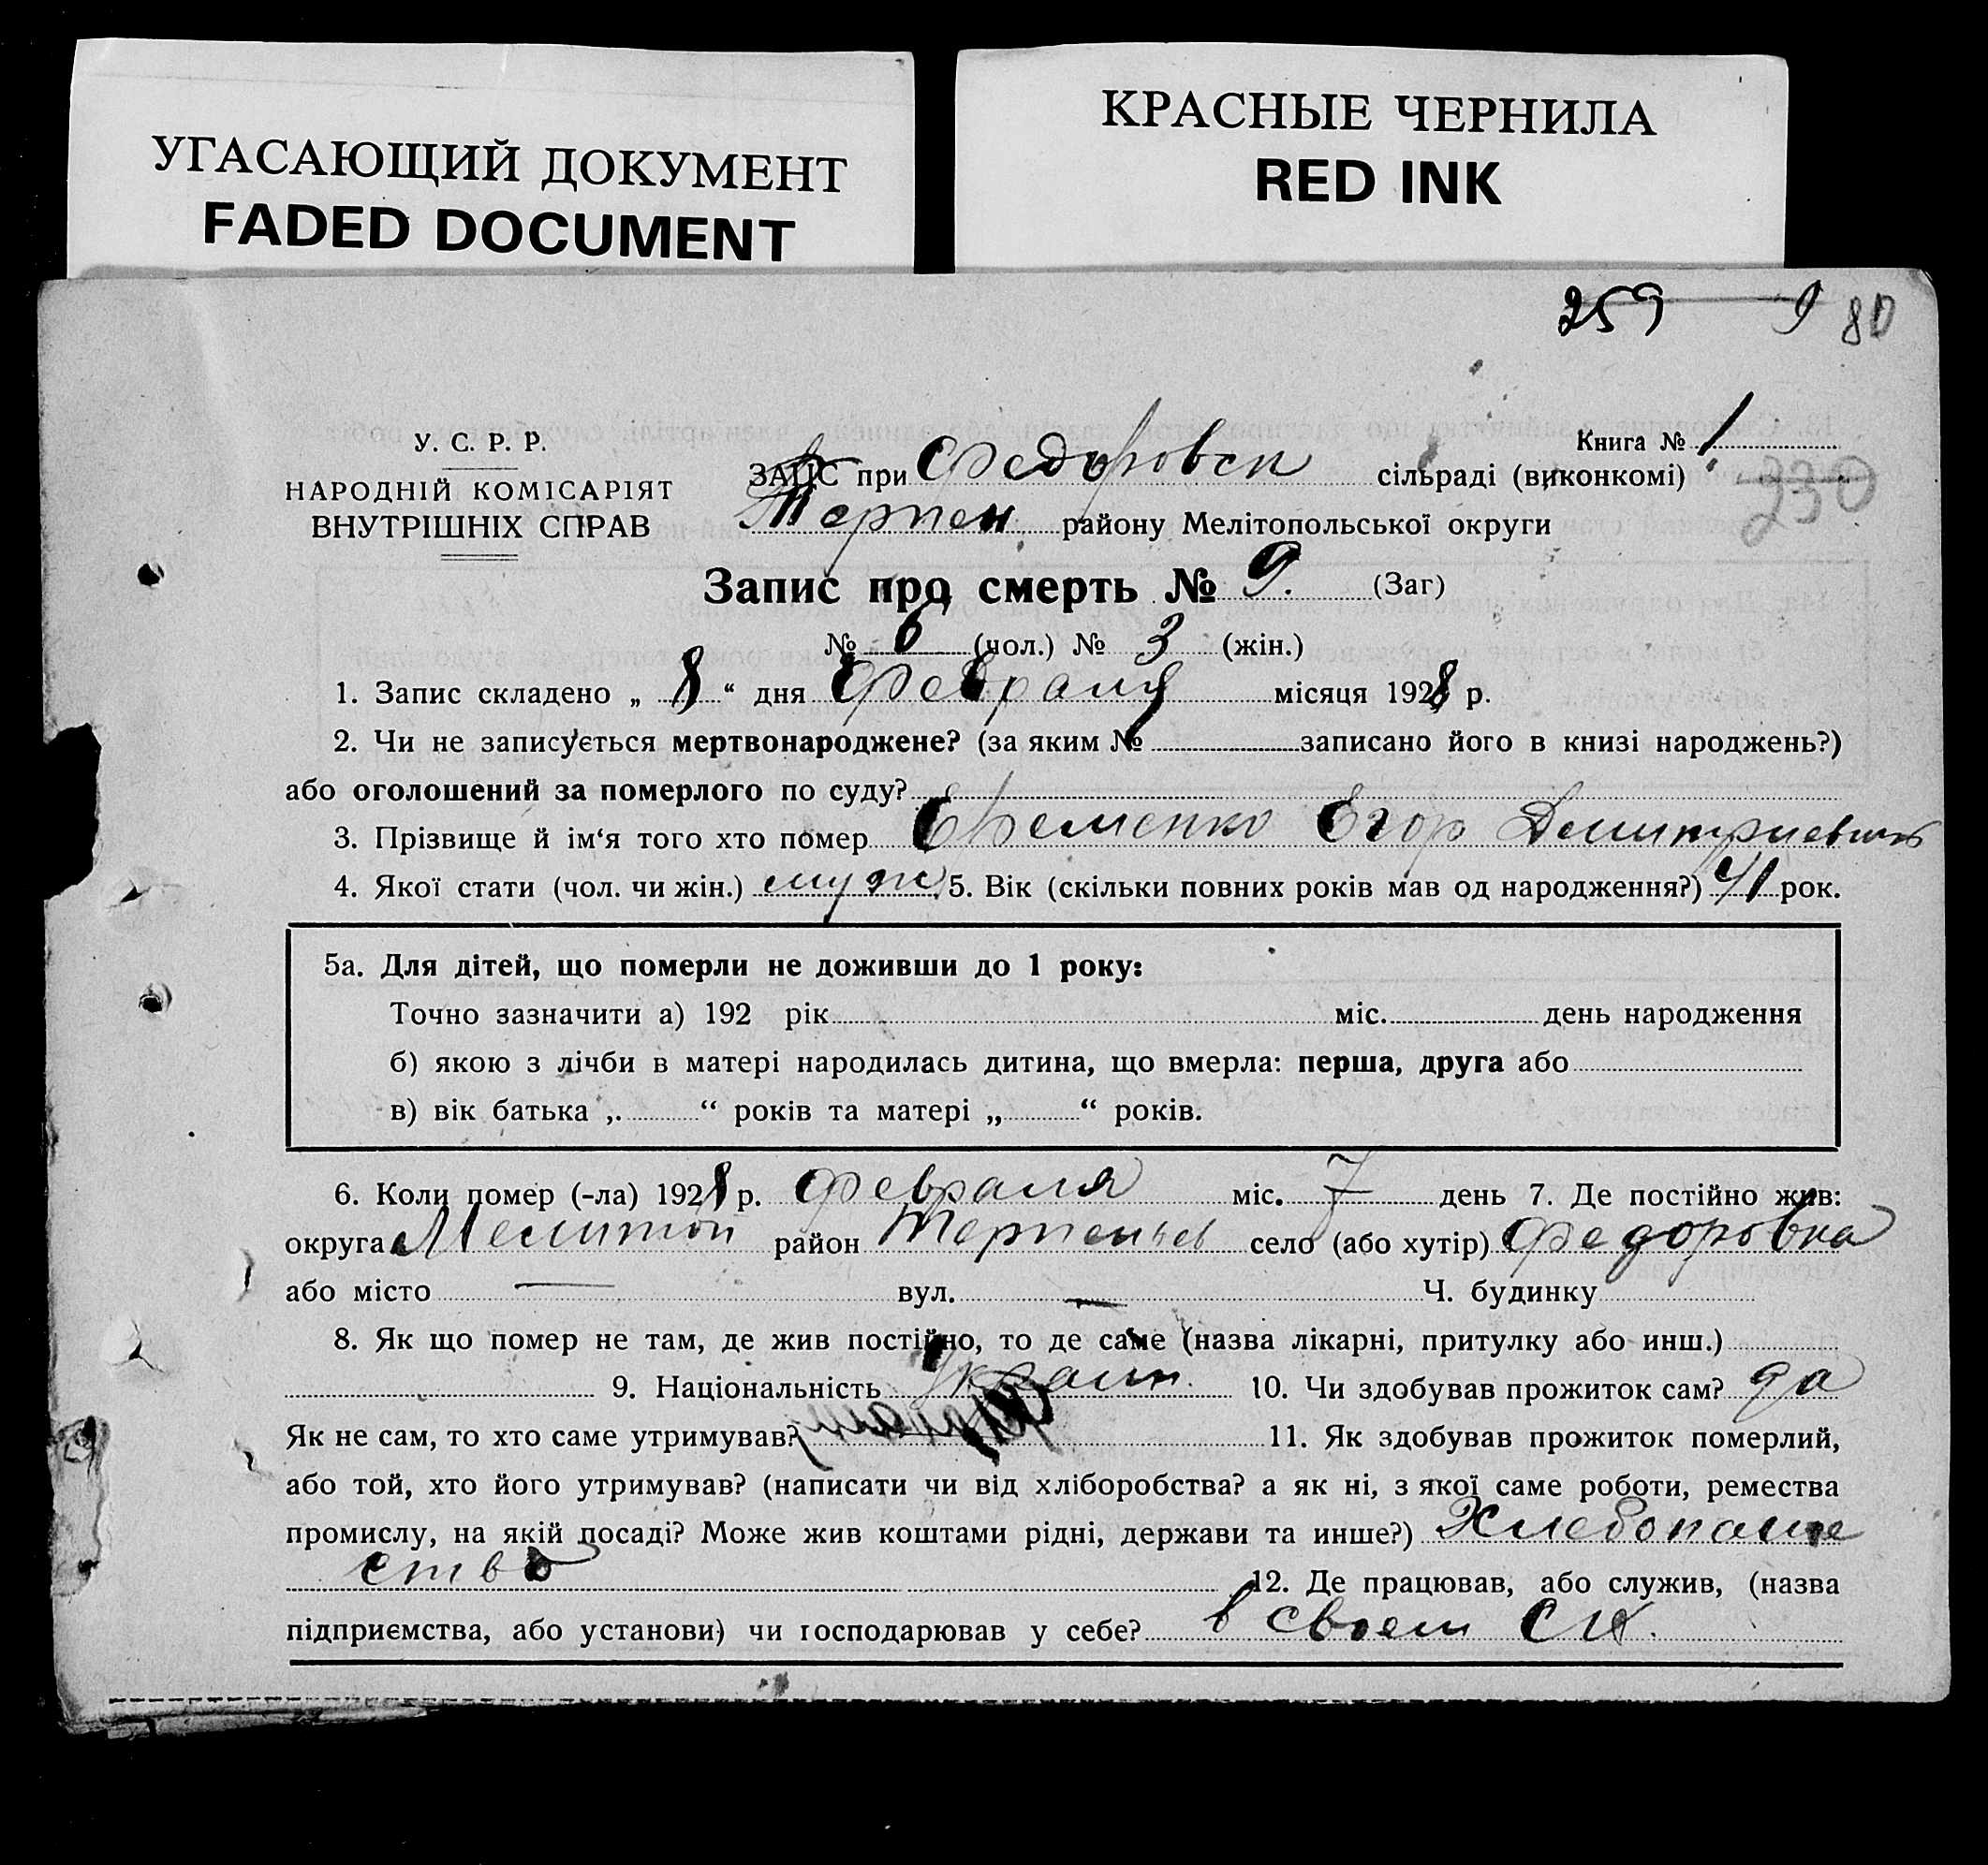 УГАСАЮЩИЙ ДОКУМЕНТ
FADED DOCUMENT
КРАСНЫЕ ЧЕРНИЛА
RED INK
259 9 80
У. С. Р. Р.
НАРОДНІЙ КОМІСАРІЯТ
ВНУТРІШНІХ СПРАВ
Книга № 1
ЗАПІС при Федоровск сільраді (виконкомі)
230
Терпен району Мелітопольської округи
Запис про смерть № 9. (Заг)
№ 6 (чол.) № 3 (жін.)
1. Запис складено „ 8 “ дня Февраля місяця 1928 р.
2. Чи не записується мертвонароджене? (за яким № записано його в книзі народжень?)
або оголошений за померлого по суду?
3. Прізвище й ім‘я того хто помер Ефременко Егор Дмитриевич
4. Якої стати (чол. чи жін.) муж 5. Вік (скільки повних років мав од народження?) 41 рок.
5а. Для дітей, що померли не доживши до 1 року:
Точно зазначити а) 192 рік міс. день народження
б) якою з лічби в матері народилась дитина, що вмерла: перша, друга або
в) вік батька „ “ років та матері „ “ років.
6. Коли помер (-ла) 1928 р. февраля міс. 7 день 7. Де постійно жив:
округа Мелитоп район Терпеньев село (або хутір) Федоровка
або місто — вул. — Ч. будинку
8. Як що помер не там, де жив постійно, то де саме (назва лікарні, притулку або инш.)
9. Національність Украин. 10. Чи здобував прожиток сам? да
Як не сам, то хто саме утримував? 11. Як здобував прожиток померлий,
або той, хто його утримував? (написати чи від хліборобства? а як ні, з якої саме роботи, ремества
промислу, на якій посаді? Може жив коштами рідні, держави та инше?) Хлебопаше
ство
12. Де працював, або служив, (назва
підприємства, або установи) чи господарював у себе? в своем СХ.